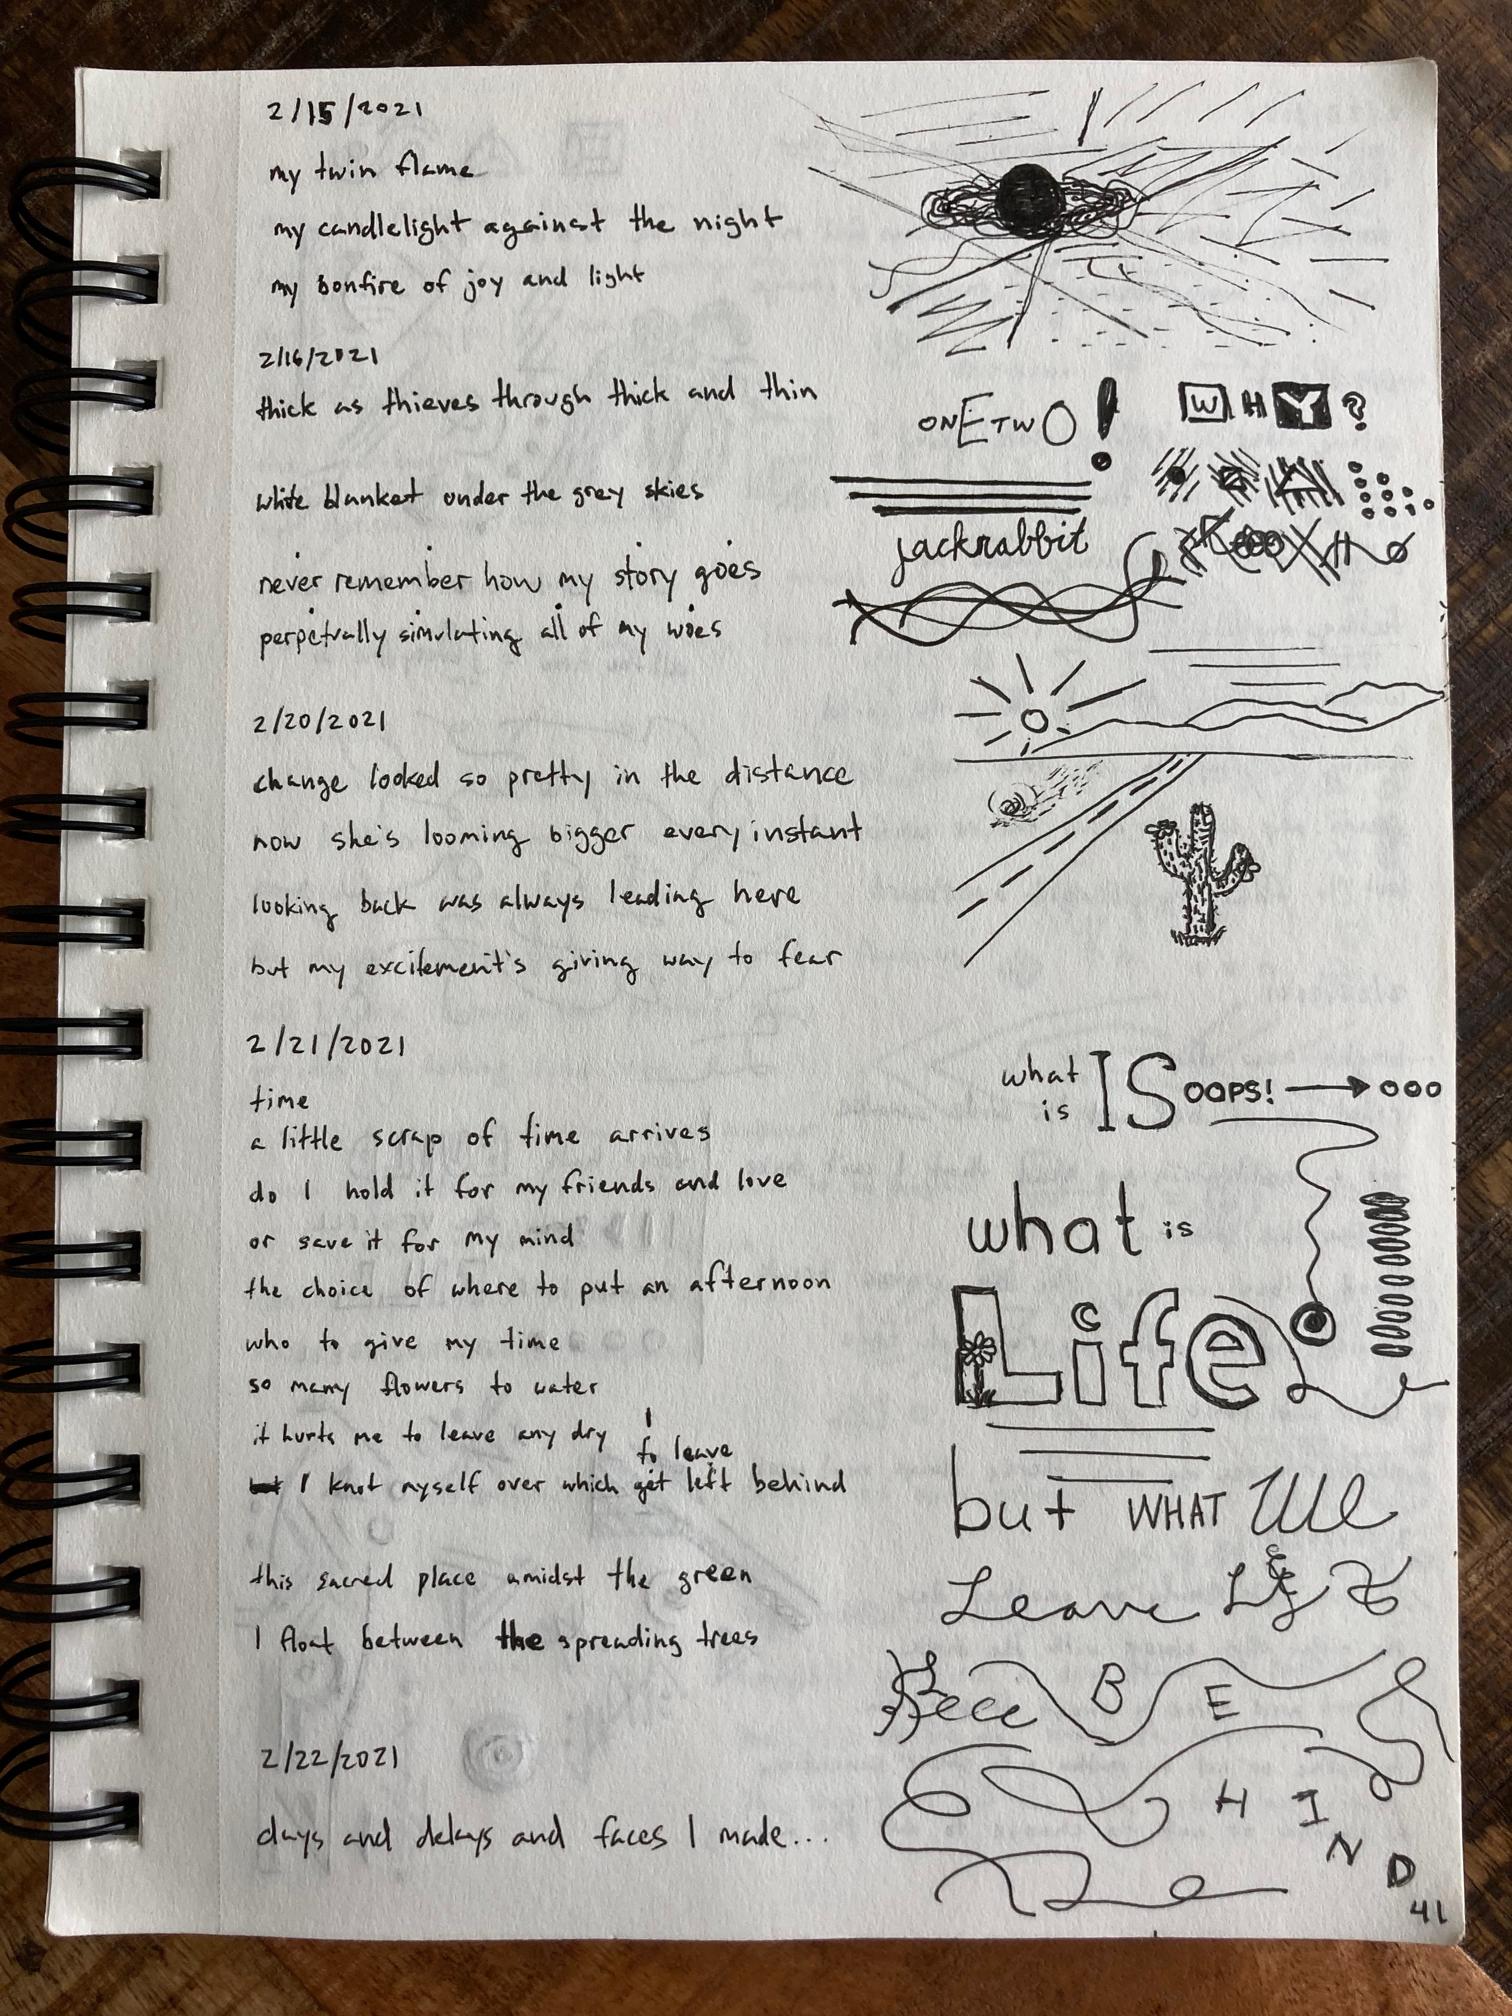 2/15/2021
my twin flame
my candlelight against the night
my bonfire of joy and light
2/16/2021
thick as thieves through thick and thin
white blanket under the grey skies
never remember how my story goes
perpetually simulating all of my woes
2/20/2021
change looked so pretty in the distance
now she's looming bigger every instant
looking back was always leading here
but my excitement's giving way to fear
2/21/2021
time
a little scrap of time arrives
do I hold it for my friends and love
or save it for my mind
the choice of where to put an afternoon
who to give my time
so many flowers to water
it hurts me to leave any dry
to leave
but I knot myself over which get left behind
this sacred place amidst the green
I float between the spreading trees
2/22/2021
days and delays and faces I made...
ONETWO!
WHY?
jackrabbit
what
is IS OOPS! ooo
what is
Life
but WHAT we
Leave
B E
H I N D
41